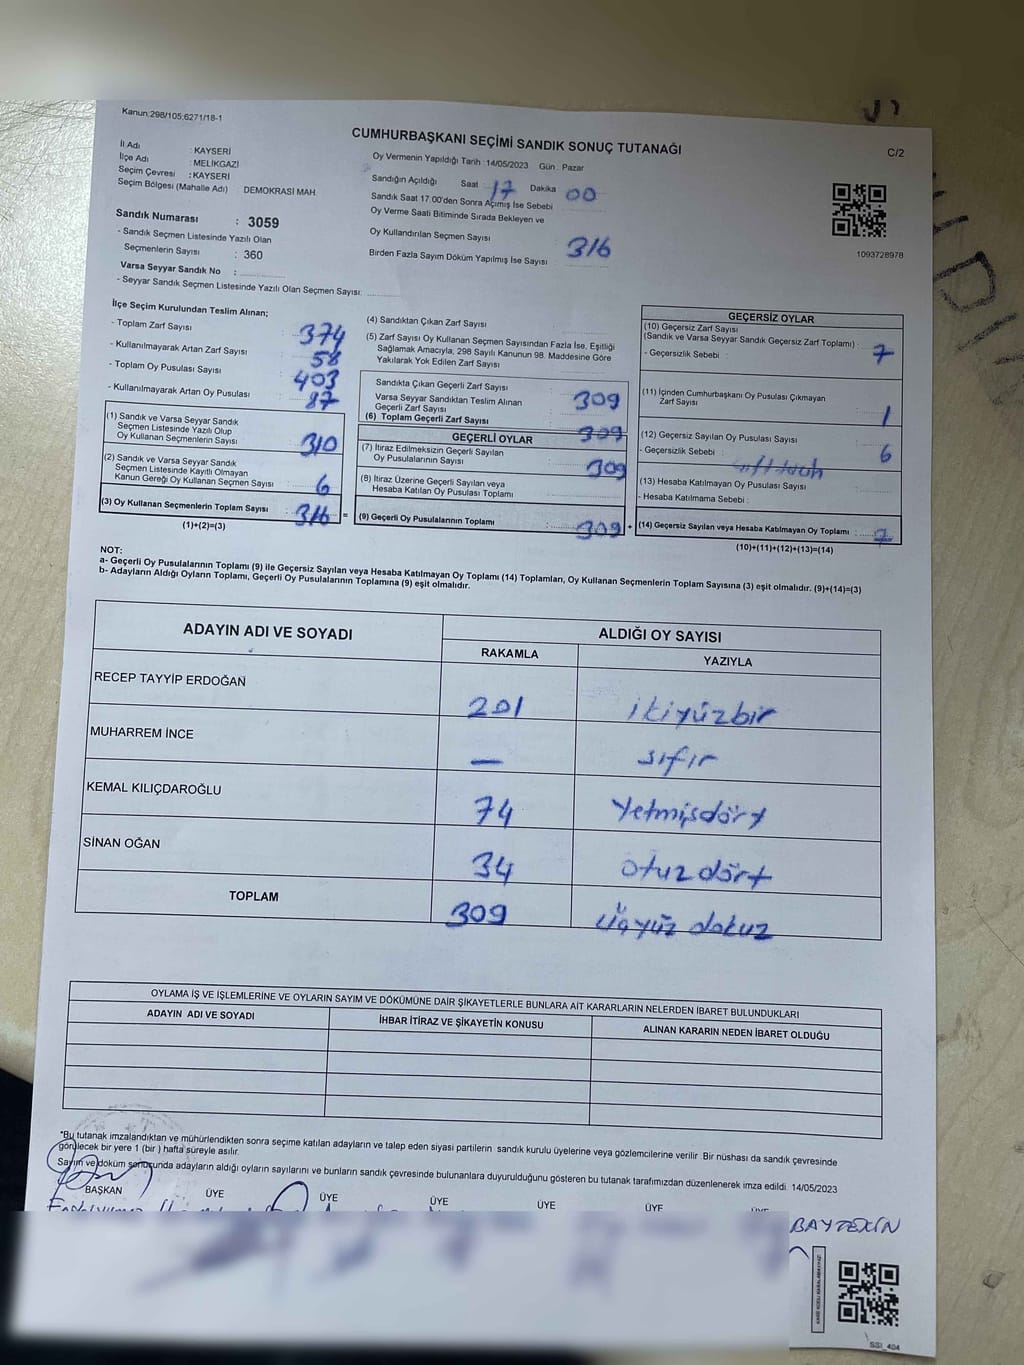 Kanun:298/105:6271/18-1
CUMHURBAŞKANI SEÇİMİ SANDIK SONUÇ TUTANAĞI
C/2
İl Adı : KAYSERİ
İlçe Adı : MELİKGAZİ
Seçim Çevresi : KAYSERİ
Seçim Bölgesi (Mahalle Adı) DEMOKRASİ MAH.
Oy Vermenin Yapıldığı Tarih :14/05/2023 Gün : Pazar
Sandığın Açıldığı Saat 17 Dakika 00
Sandık Saat 17.00'den Sonra Açımış İse Sebebi
Oy Verme Saati Bitiminde Sırada Bekleyen ve
Oy Kullandırılan Seçmen Sayısı 316
Birden Fazla Sayım Döküm Yapılmış İse Sayısı
1093728978
Sandık Numarası : 3059
- Sandık Seçmen Listesinde Yazılı Olan
Seçmenlerin Sayısı : 360
Varsa Seyyar Sandık No :
- Seyyar Sandık Seçmen Listesinde Yazılı Olan Seçmen Sayısı:
İlçe Seçim Kurulundan Teslim Alınan;
- Toplam Zarf Sayısı 374
- Kullanılmayarak Artan Zarf Sayısı 58
- Toplam Oy Pusulası Sayısı 403
- Kullanılmayarak Artan Oy Pusulası 87
(1) Sandık ve Varsa Seyyar Sandık
Seçmen Listesinde Yazılı Olup
Oy Kullanan Seçmenlerin Sayısı 310
(2) Sandık ve Varsa Seyyar Sandık
Seçmen Listesinde Kayıtlı Olmayan
Kanun Gereği Oy Kullanan Seçmen Sayısı 6
(3) Oy Kullanan Seçmenlerin Toplam Sayısı 316 =
(1)+(2)=(3)
(4) Sandıktan Çıkan Zarf Sayısı
(5) Zarf Sayısı Oy Kullanan Seçmen Sayısından Fazla İse, Eşitliği
Sağlamak Amacıyla, 298 Sayılı Kanunun 98. Maddesine Göre
Yakılarak Yok Edilen Zarf Sayısı
Sandıkta Çıkan Geçerli Zarf Sayısı
Varsa Seyyar Sandıktan Teslim Alınan 309
Geçerli Zarf Sayısı
(6) Toplam Geçerli Zarf Sayısı 309
GEÇERLİ OYLAR
(7) İtiraz Edilmeksizin Geçerli Sayılan
Oy Pusulalarının Sayısı 309
(8) İtiraz Üzerine Geçerli Sayılan veya
Hesaba Katılan Oy Pusulası Toplamı
(9) Geçerli Oy Pusulalarının Toplamı 309 +
GEÇERSİZ OYLAR
(10) Geçersiz Zarf Sayısı
(Sandık ve Varsa Seyyar Sandık Geçersiz Zarf Toplamı)
- Geçersizlik Sebebi : 7
(11) İçinden Cumhurbaşkanı Oy Pusulası Çıkmayan
Zarf Sayısı 1
(12) Geçersiz Sayılan Oy Pusulası Sayısı 6
- Geçersizlik Sebebi :
(13) Hesaba Katılmayan Oy Pusulası Sayısı
- Hesaba Katılmama Sebebi :
(14) Geçersiz Sayılan veya Hesaba Katılmayan Oy Toplamı 7
(10)+(11)+(12)+(13)=(14)
NOT:
a- Geçerli Oy Pusulalarının Toplamı (9) ile Geçersiz Sayılan veya Hesaba Katılmayan Oy Toplamı (14) Toplamları, Oy Kullanan Seçmenlerin Toplam Sayısına (3) eşit olmalıdır. (9)+(14)=(3)
b- Adayların Aldığı Oyların Toplamı, Geçerli Oy Pusulalarının Toplamına (9) eşit olmalıdır.
ADAYIN ADI VE SOYADI ALDIĞI OY SAYISI
RAKAMLA YAZIYLA
RECEP TAYYİP ERDOĞAN 201 ikiyüzbir
MUHARREM İNCE — sıfır
KEMAL KILIÇDAROĞLU 74 Yetmişdört
SİNAN OĞAN 34 otuz dört
TOPLAM 309 üçyüz dokuz
OYLAMA İŞ VE İŞLEMLERİNE VE OYLARIN SAYIM VE DÖKÜMÜNE DAİR ŞİKAYETLERLE BUNLARA AİT KARARLARIN NELERDEN İBARET BULUNDUKLARI
ADAYIN ADI VE SOYADI İHBAR İTİRAZ VE ŞİKAYETİN KONUSU ALINAN KARARIN NEDEN İBARET OLDUĞU
*Bu tutanak imzalandıktan ve mühürlendikten sonra seçime katılan adayların ve talep eden siyasi partilerin sandık kurulu üyelerine veya gözlemcilerine verilir. Bir nüshası da sandık çevresinde
görülecek bir yere 1 (bir ) hafta süreyle asılır.
Sayım ve döküm sonucunda adayların aldığı oyların sayılarını ve bunların sandık çevresinde bulunanlara duyurulduğunu gösteren bu tutanak tarafımızdan düzenlenerek imza edildi. 14/05/2023
BAŞKAN ÜYE ÜYE ÜYE ÜYE ÜYE ÜYE
BAYTEKİN
SSI_404